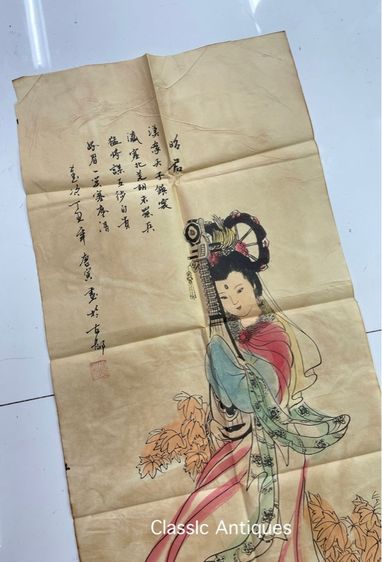 昭君
漢家天子鎮寰
瀛塞北羌胡不罷兵
猛將謀臣徒自貴
眉一笑塞塵清
丁丑年唐寅畫於古都
Classic Antiques